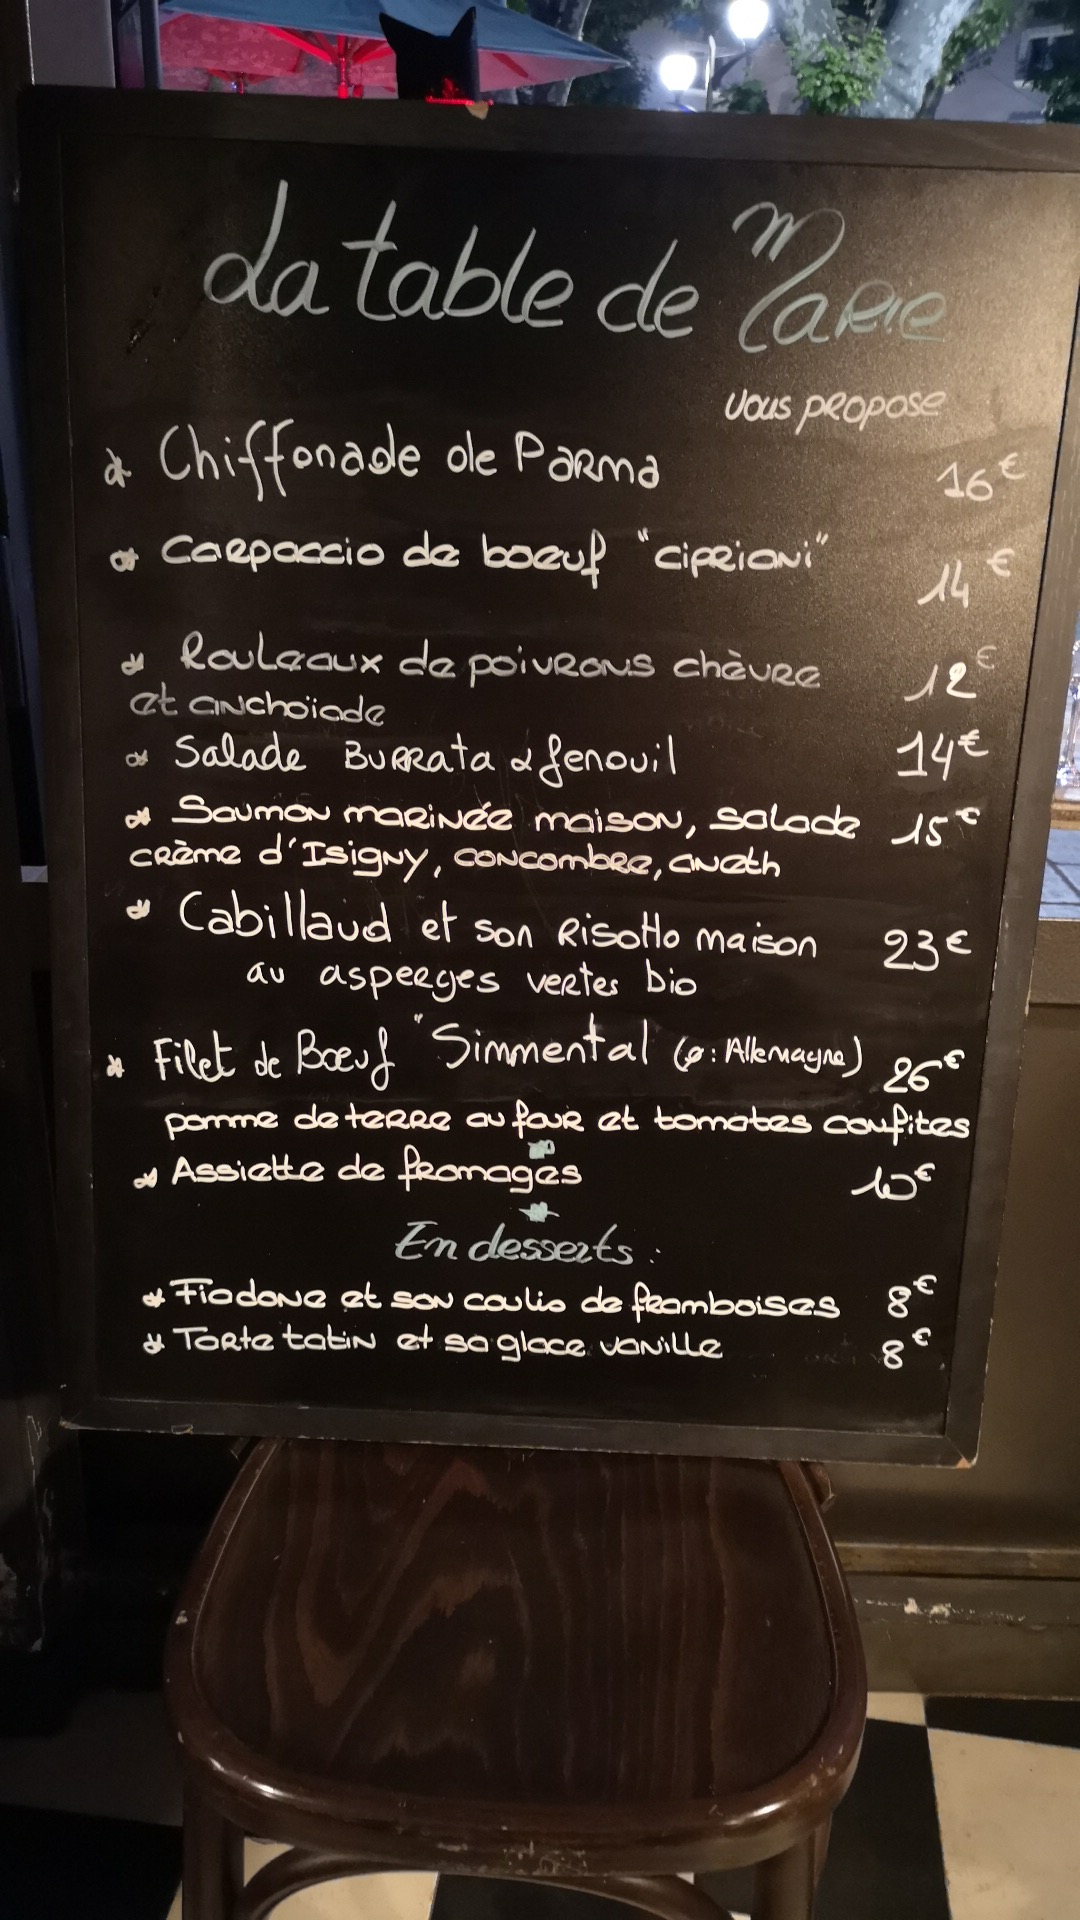 La table de Marie
vous propose
Chiffonade de Parma 16€
Carpaccio de boeuf "cipriani" 14€
Rouleaux de poivrons chèvre 12€
et anchoïade
Salade Burrata & fenouil 14€
Saumon marinée maison, salade 15€
crème d'Isigny, concombre, aneth
Cabillaud et son Risotto maison 23€
au asperges vertes bio
Filet de Bœuf "Simmental (o: Allemagne) 26€
pomme de terre au four et tomates confites
Assiette de fromages 10€
En desserts :
Fiadone et son coulis de framboises 8€
Torte tatin et sa glace vanille 8€